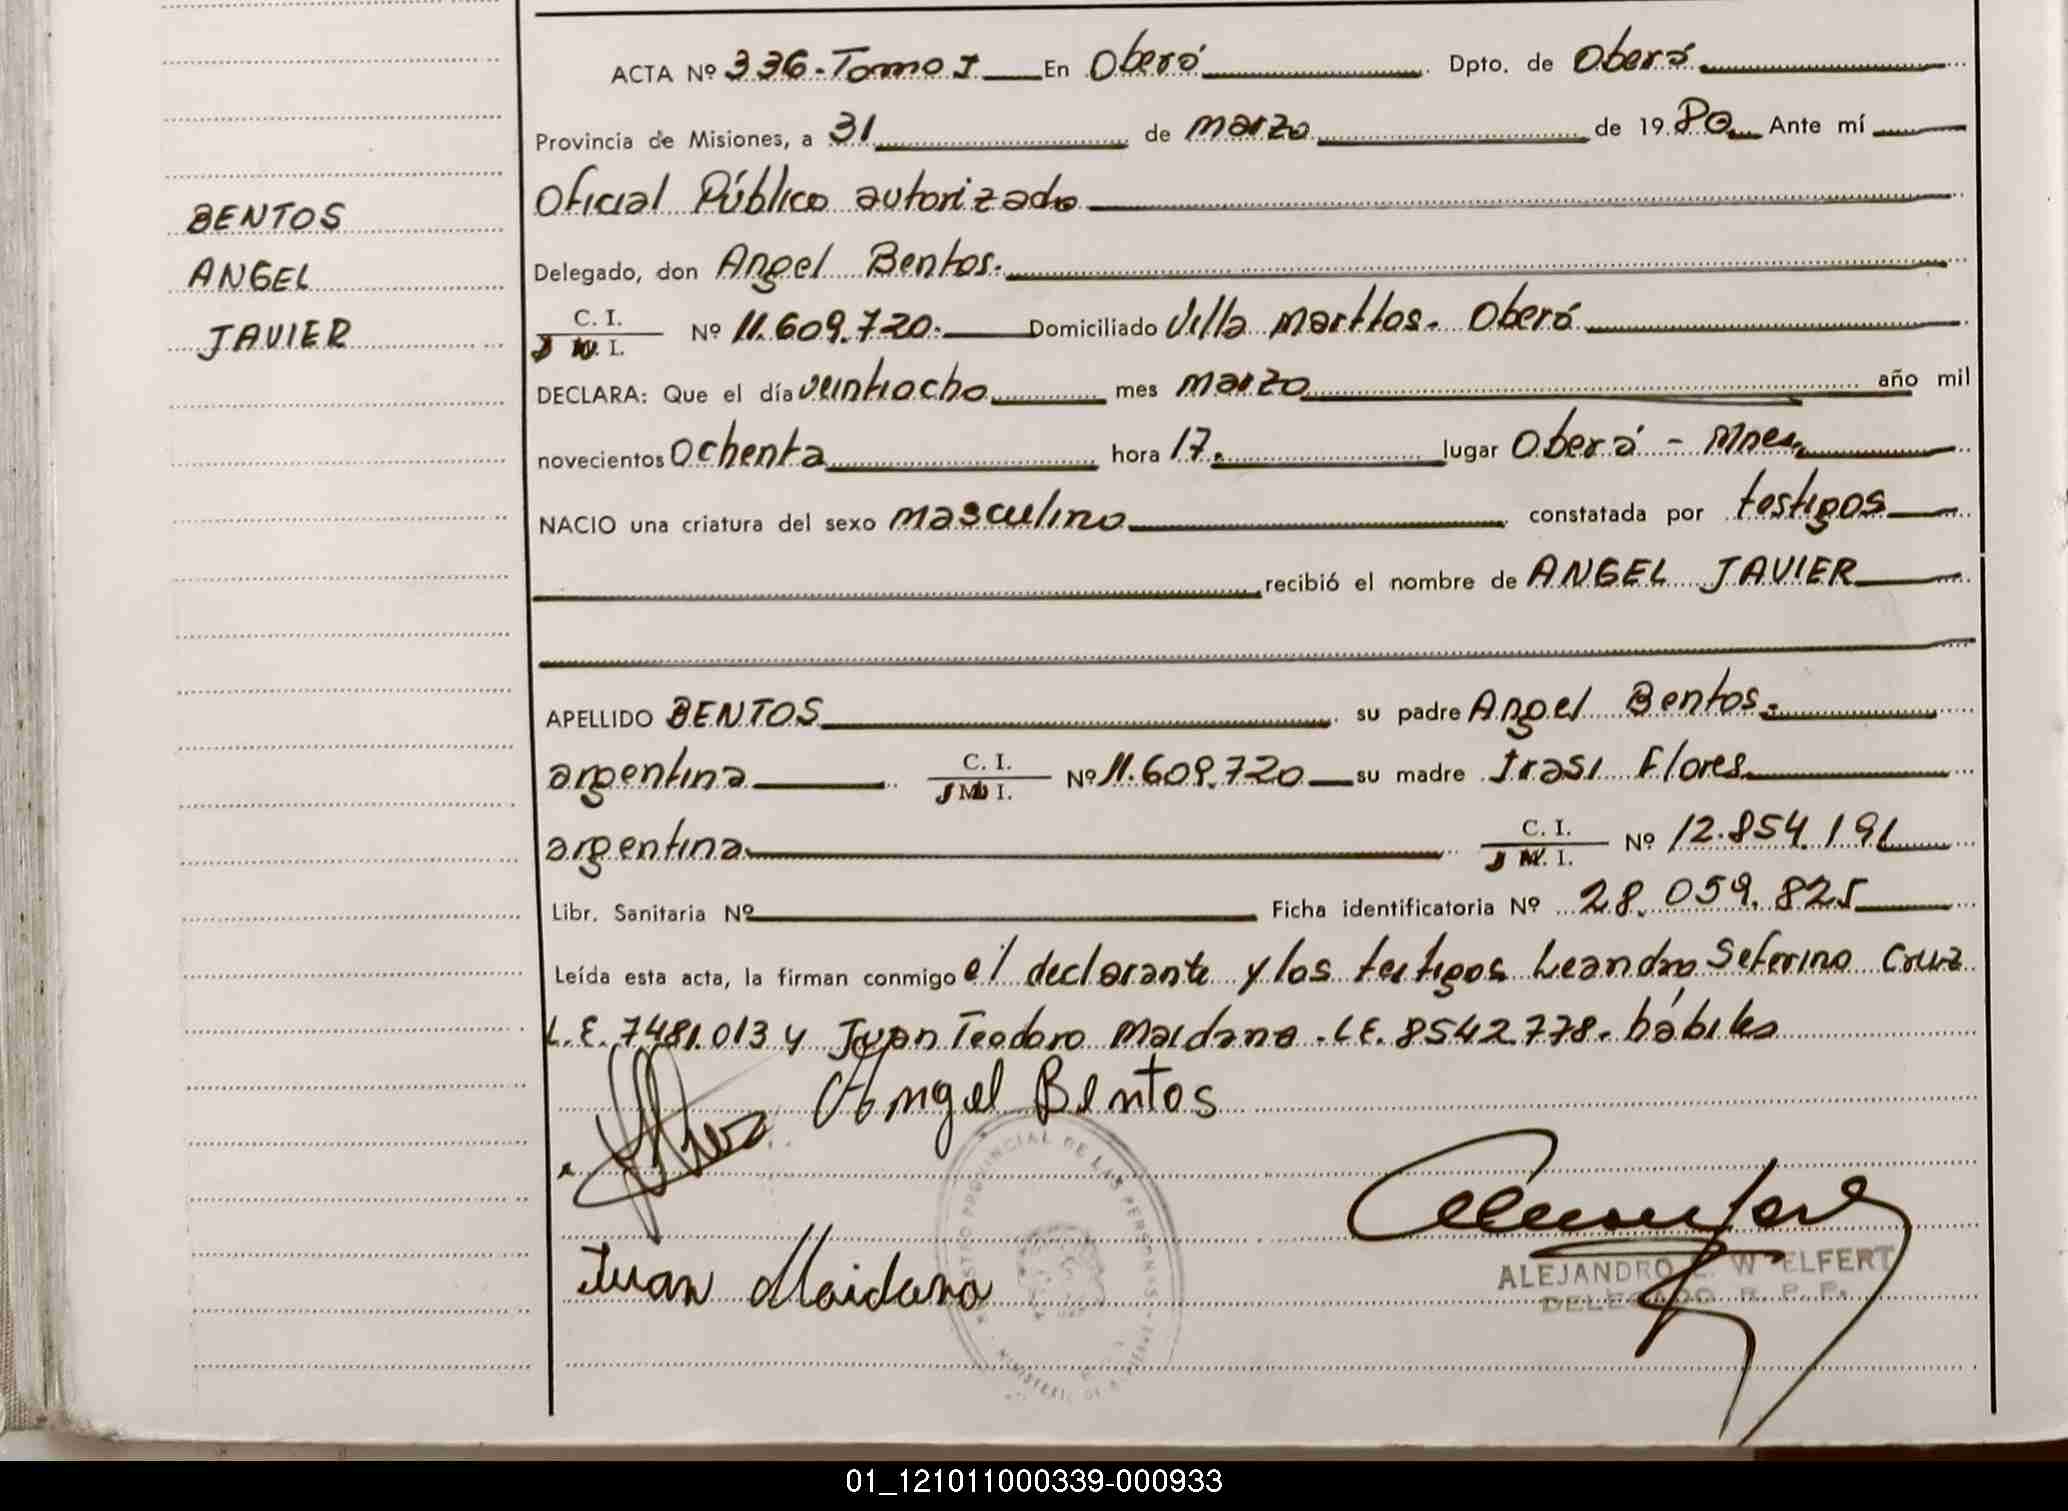 ACTA Nº 336-Tomo I En Oberá Dpto. de Oberá
Provincia de Misiones, a 31 de marzo de 1980 Ante mí
Oficial Público autorizado
Delegado, don Angel Bentos.
BENTOS
ANGEL
JAVIER
C. I.
Nº 11.609.720. Domiciliado Villa Martlos. Oberá
I.
DECLARA: Que el día veintiocho mes marzo año mil
novecientos ochenta hora 17. lugar Oberá - Mnes.
NACIO una criatura del sexo masculino constatada por testigos
recibió el nombre de ANGEL JAVIER
APELLIDO BENTOS su padre Angel Bentos.
argentina C. I. Nº 11.609.720 su madre Irasi Flores
M. I.
argentina C. I. Nº 12.854.191
M. I.
Libr. Sanitaria Nº Ficha identificatoria Nº 28.059.825
Leída esta acta, la firman conmigo el declarante y los testigos Leandro Seferino Cruz
L.E. 7481.013 y Juan Teodoro Maidana. L.E. 8542.778. hábiles
Angel Bentos
REGISTRO PROVINCIAL DE LAS PERSONAS
Juan Maidana
ALEJANDRO
DELEGADO R. P. P.
01_121011000339-000933